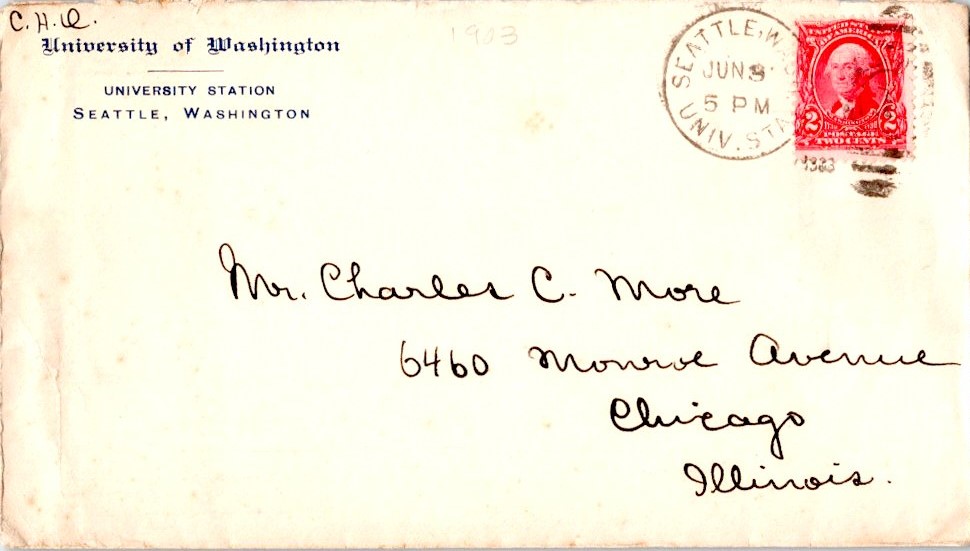 C. H. Q.
University of Washington
UNIVERSITY STATION
SEATTLE, WASHINGTON
1903
SEATTLE, WASH
JUN 3
5 PM
UNIV. STA
UNITED STATES
OF AMERICA
2 2
POSTAGE
TWO CENTS
Mr. Charles C. More
6460 Monroe Avenue
Chicago
Illinois.